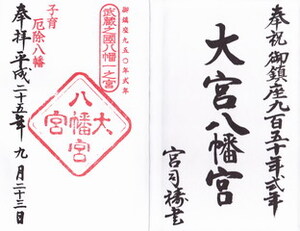 奉祝御鎮座九百五十年式年
大宮八幡宮
宮司祷書
御鎮座九五〇年式年
武蔵之國八幡一之宮
子育
厄除八幡
大宮八幡宮
奉拝平成二十五年九月二十三日